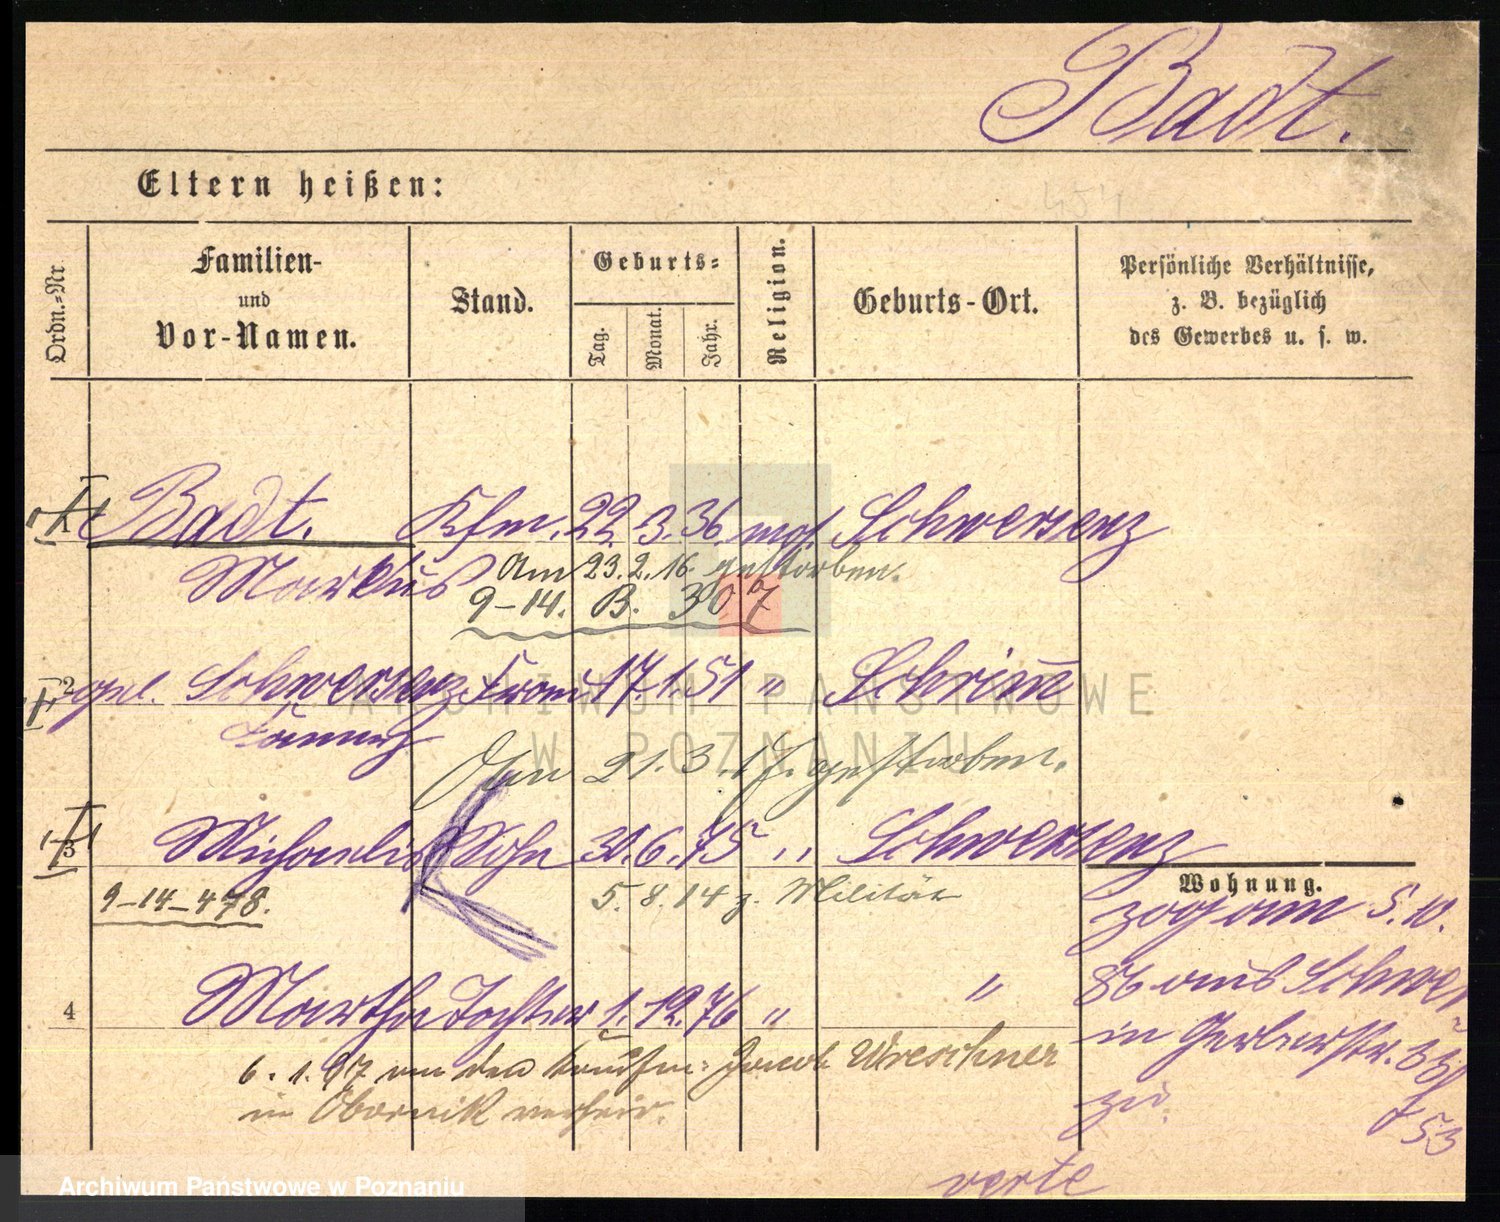 Badt.
Eltern heißen:
Ordn.-Nr.
Familien-
und
Vor-Namen.
Stand.
Geburts-
Tag.
Monat.
Jahr.
Religion.
Geburts-Ort.
Persönliche Verhältnisse,
z. B. bezüglich
des Gewerbes u. s. w.
1 Badt. Kfm. 22. 3. 36. mos. Schwersenz
Markus Am 23. 2. 16. gestorben.
9-14. B. 307
2 geb. Schwersenz Frau 17. 1. 51 " Schrimm
ARCHIWUM PAŃSTWOWE
W POZNANIU
21. 3. gestorben.
3 Michaelis Sohn 30. 6. 75 " Schwersenz
Wohnung.
9-14-478. 5. 8. 14 z. Militär
zog am 5. 10.
86 aus Schwersenz
4 Martha Tochter 1. 12. 76 " "
in Gerberstr. 33
6. 1. 97 an den Kaufm. Jacob Wreschner
in Obornik verheir.
zu.
53
verte
Archiwum Państwowe w Poznaniu